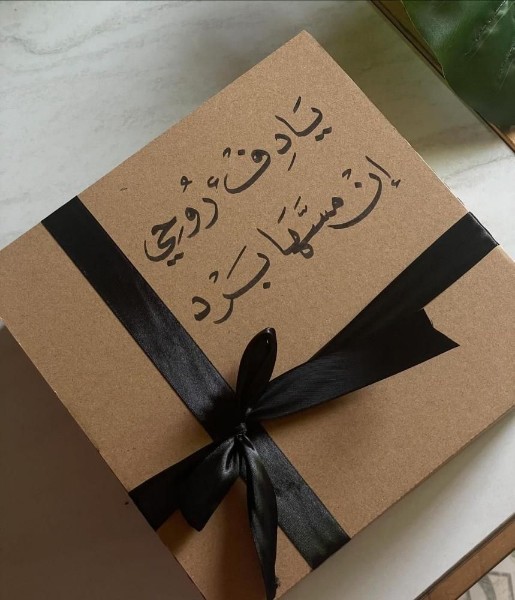 يَا دِفْءَ رُوُحِي
إنْ مسَّهَا بَرْد